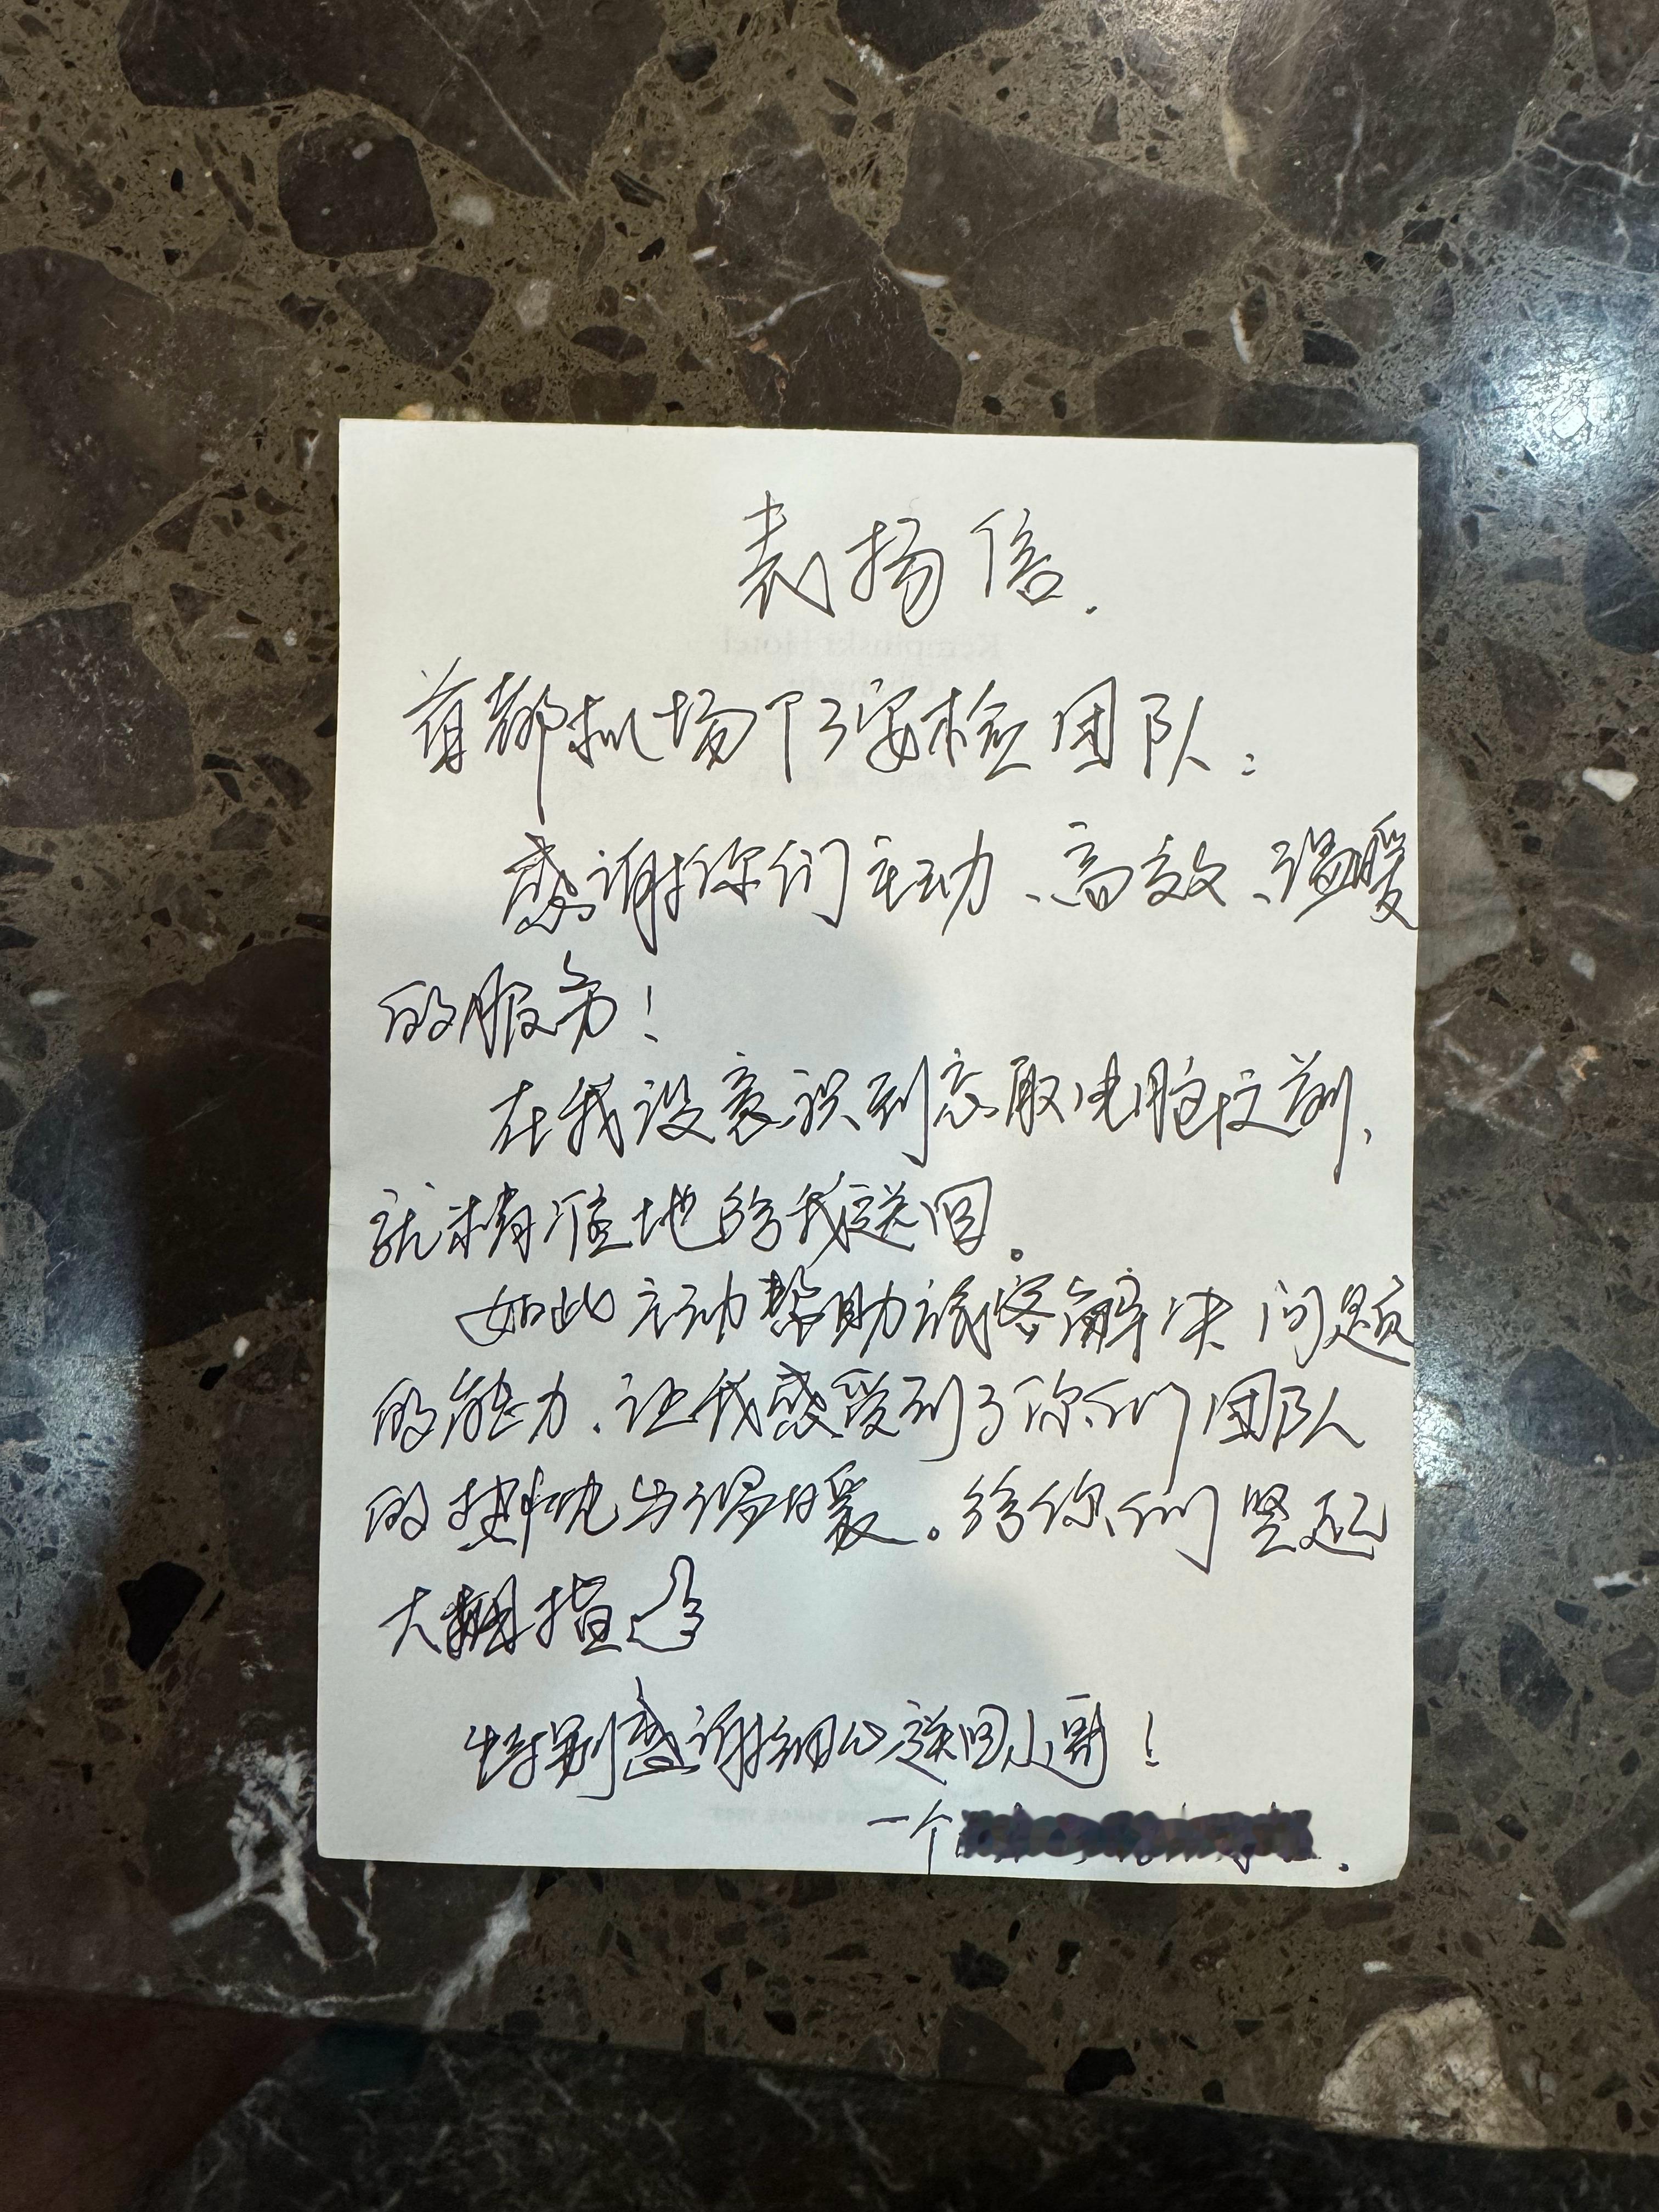 表扬信.
首都机场T3安检团队:
感谢你们主动、高效、温暖
的服务!
在我没意识到忘取电脑之前,
就精准地给我送回。
如此主动帮助旅客解决问题
的能力、让我感受到了你们团队
的热忱与温暖。给你们竖起
大拇指
特别感谢细心送回小哥!
一个